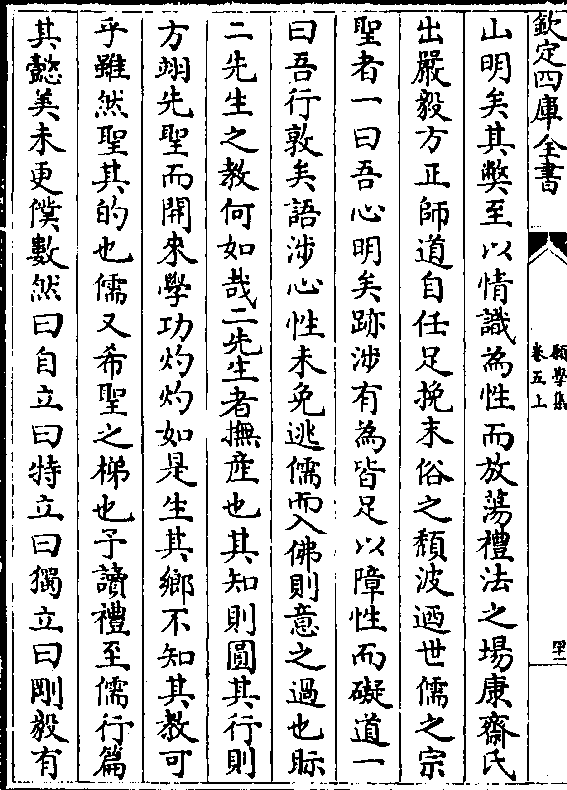 欽定四庫全書
願學集
卷五上
山明矣其弊至以情識為性而放蕩禮法之場康齋氏
出嚴毅方正師道自任足挽末俗之頽波廼世儒之宗
聖者一曰吾心明矣跡涉有為皆足以障性而礙道一
曰吾行敦矣語涉心性未免逃儒而入佛則意之過也眎
二先生之教何如哉二先生者撫産也其知則圓其行則
方翊先聖而開來學功灼灼如是生其鄉不知其教可
乎雖然聖其的也儒又希聖之梯也予讀禮至儒行篇
其懿美未更僕數然曰自立曰特立曰獨立曰剛毅有